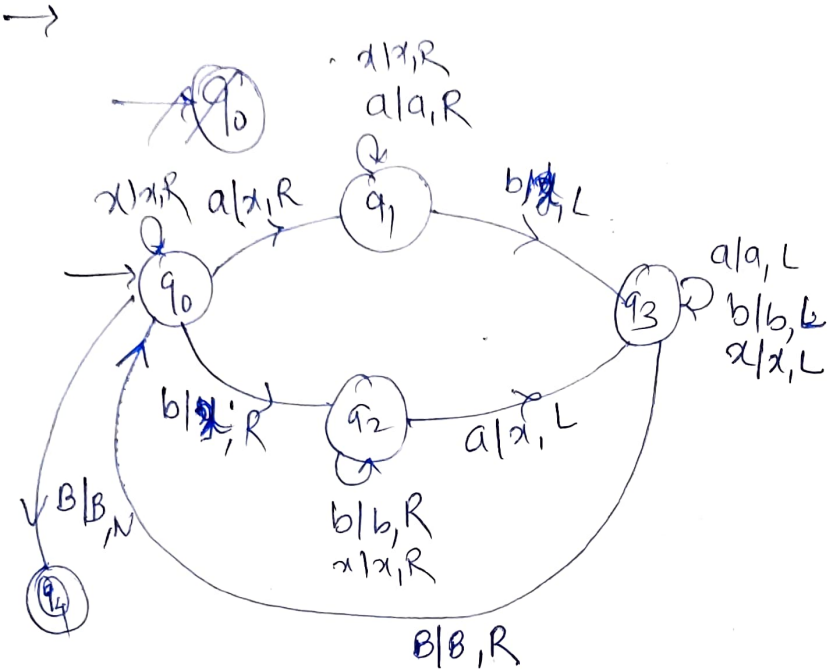 q0
x|x,R
a|a,R
x|x,R
a|x,R
q1
b|x,L
q0
q3
a|a,L
b|b,L
x|x,L
b|x,R
q2
a|x,L
b|b,R
x|x,R
B|B,N
q4
B|B,R